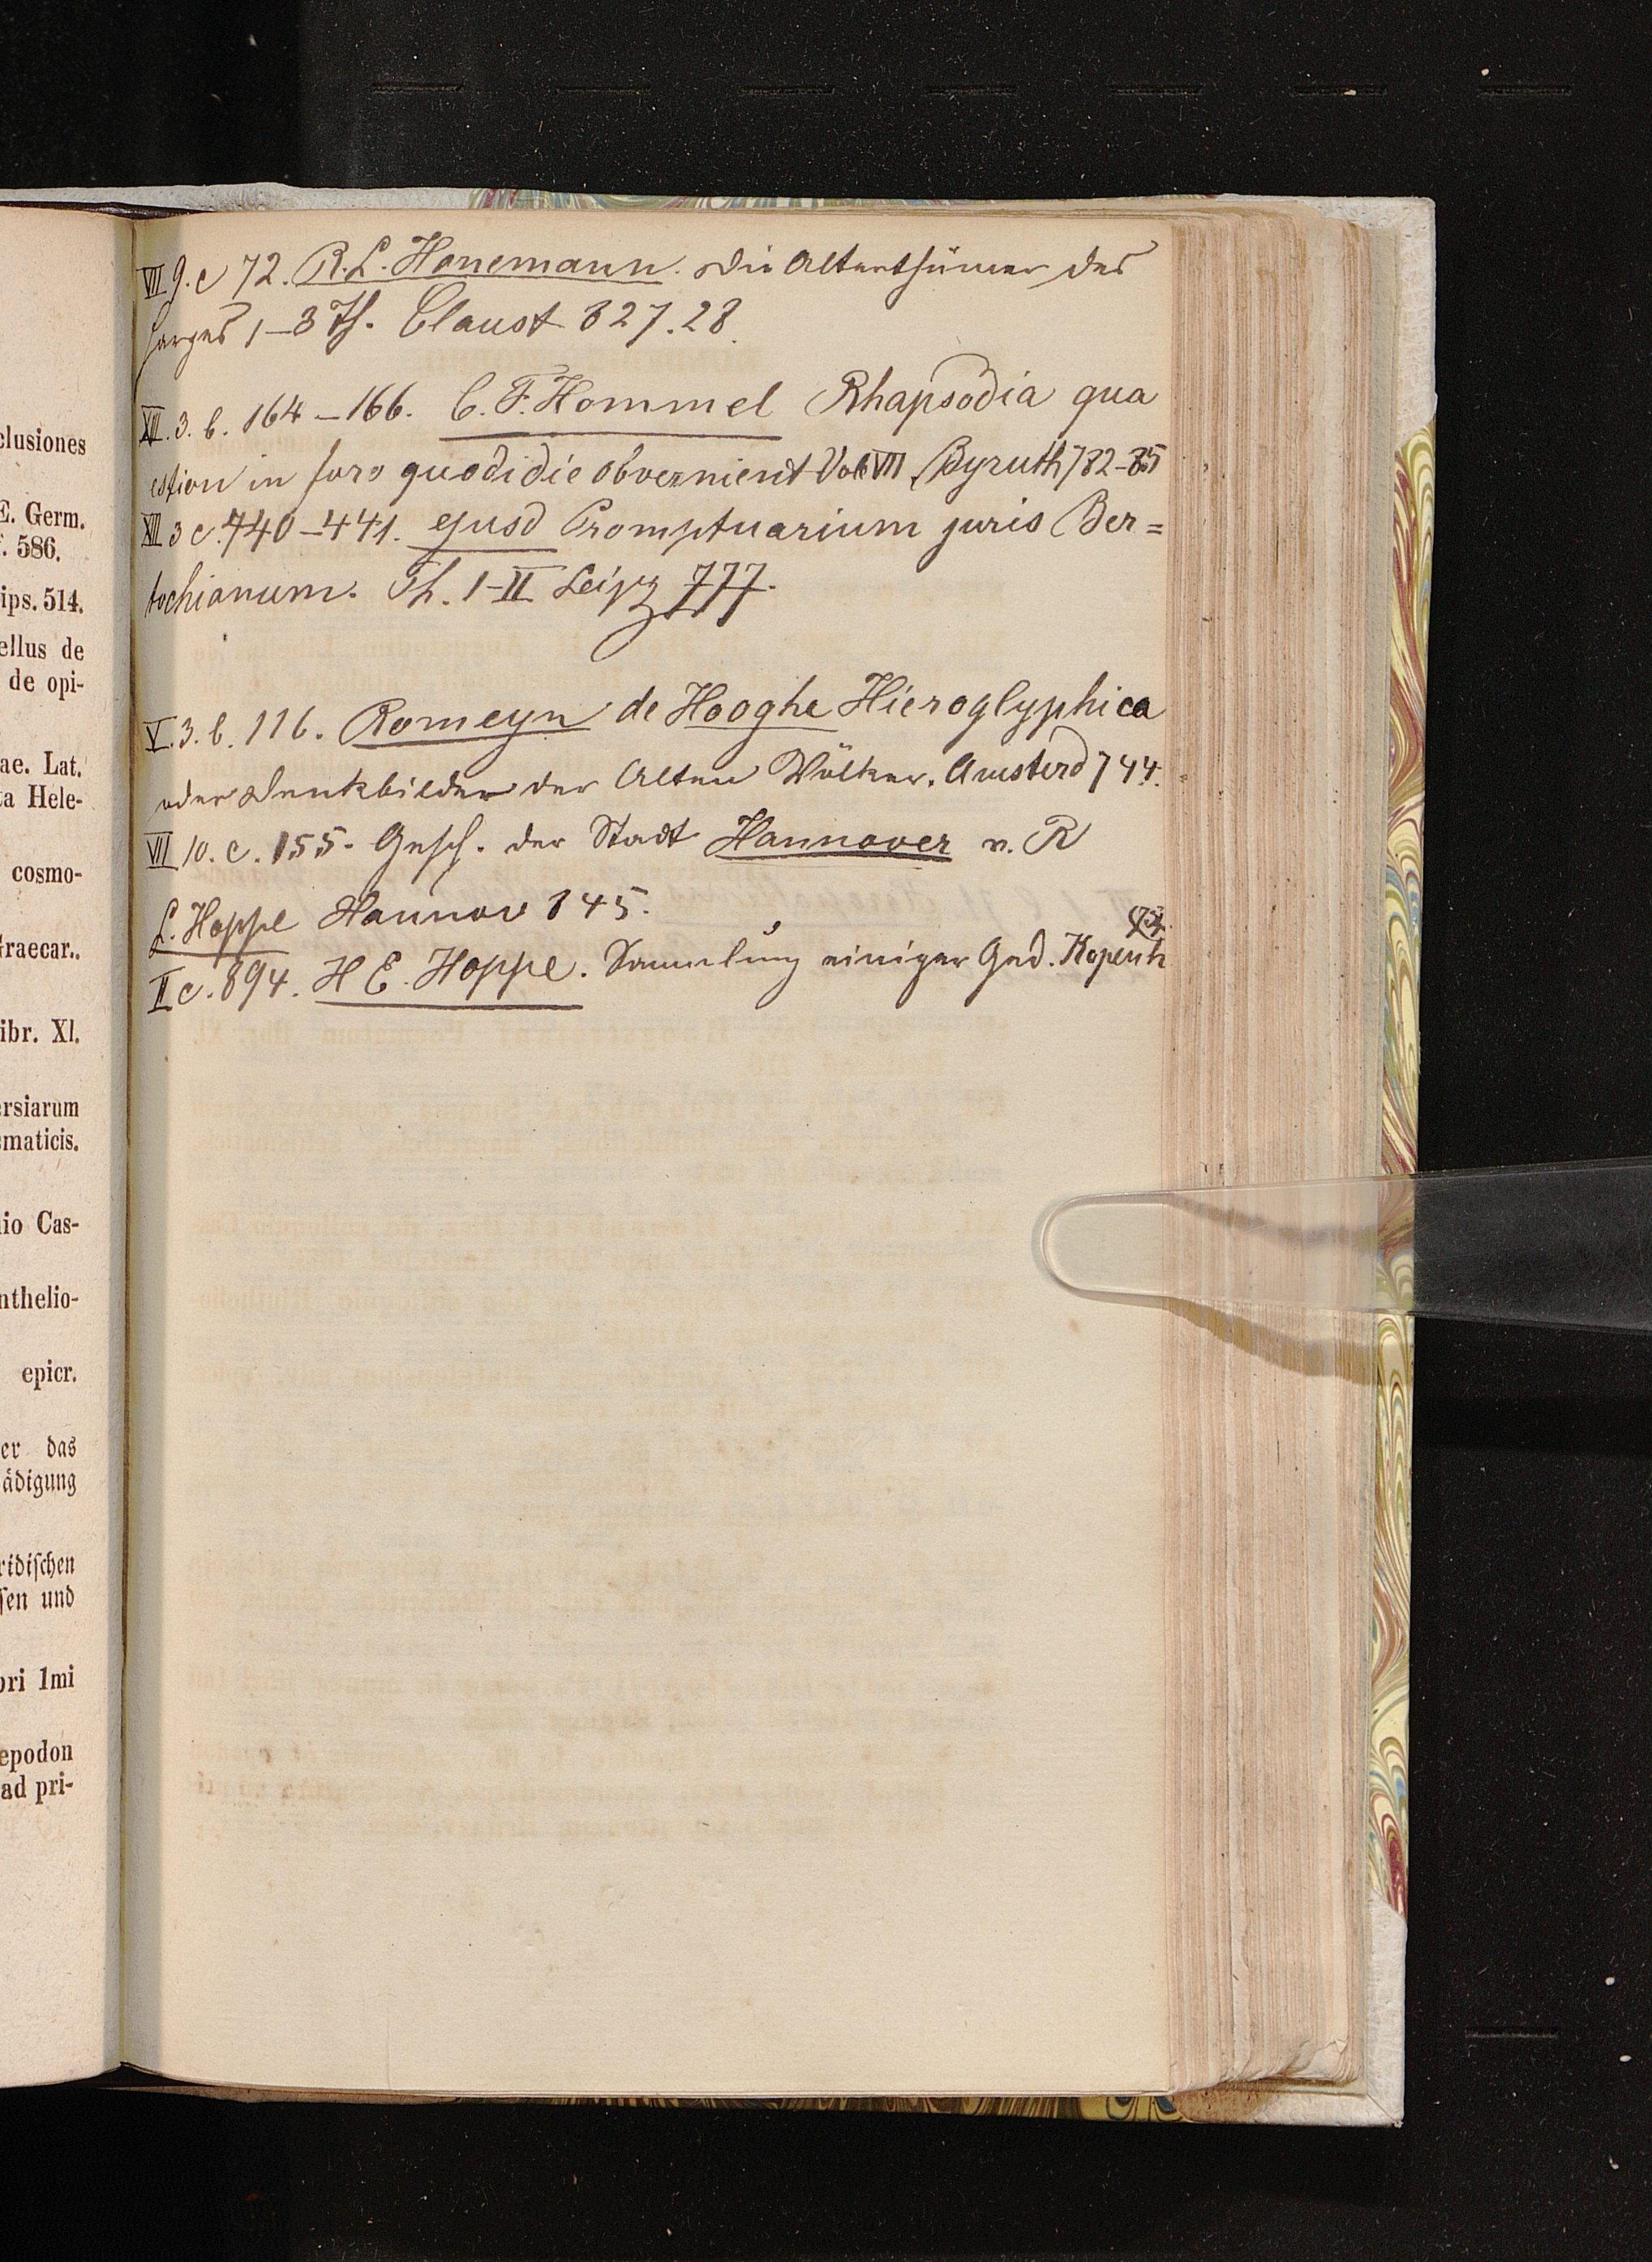 clusiones
E. Germ.
f. 586.
ips. 514.
ellus de
de opi-
ae. Lat.
ta Hele-
cosmo-
Graecar..
ibr. XI.
ersiarum
smaticis.
io Cas-
nthelio-
epicr.
er das
ädigung
ridischen
sen und
ori 1mi
epodon
ad pri-
VII 9. c 72. R. L. Honemann. Die Alterthümer des
Harzes 1–3 Th. Claust 827. 28.
XII. 3. b. 164–166. C. F. Hommel Rhapsodia qua
estion in foro quodidie obveznient Vol VII Byruth 782–85
XII 3 c. 740–441. ejusd Promptuarium juris Ber=
tochianum. Th. I–II Leipz 777.
V. 3. b. 116. Romeyn de Hooghe Hieroglyphica
oder Denkbilder der Alten Völker. Amsterd 744.
VII 10. c. 155. Gesch. der Stadt Hannover v. R
L. Hoppe Hannov 845.
II c. 894. H E. Hoppe. Sammlung einiger Ged. Kopenh